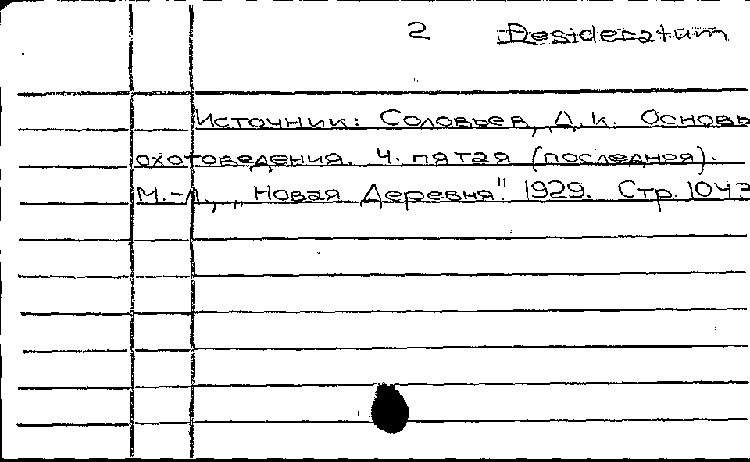 2 Desideratum
Источник: Соловьев, Д.К. Основы
охотоведения. Ч. пятая (последняя).
М.-Л., „Новая Деревня" 1929. Стр. 1043